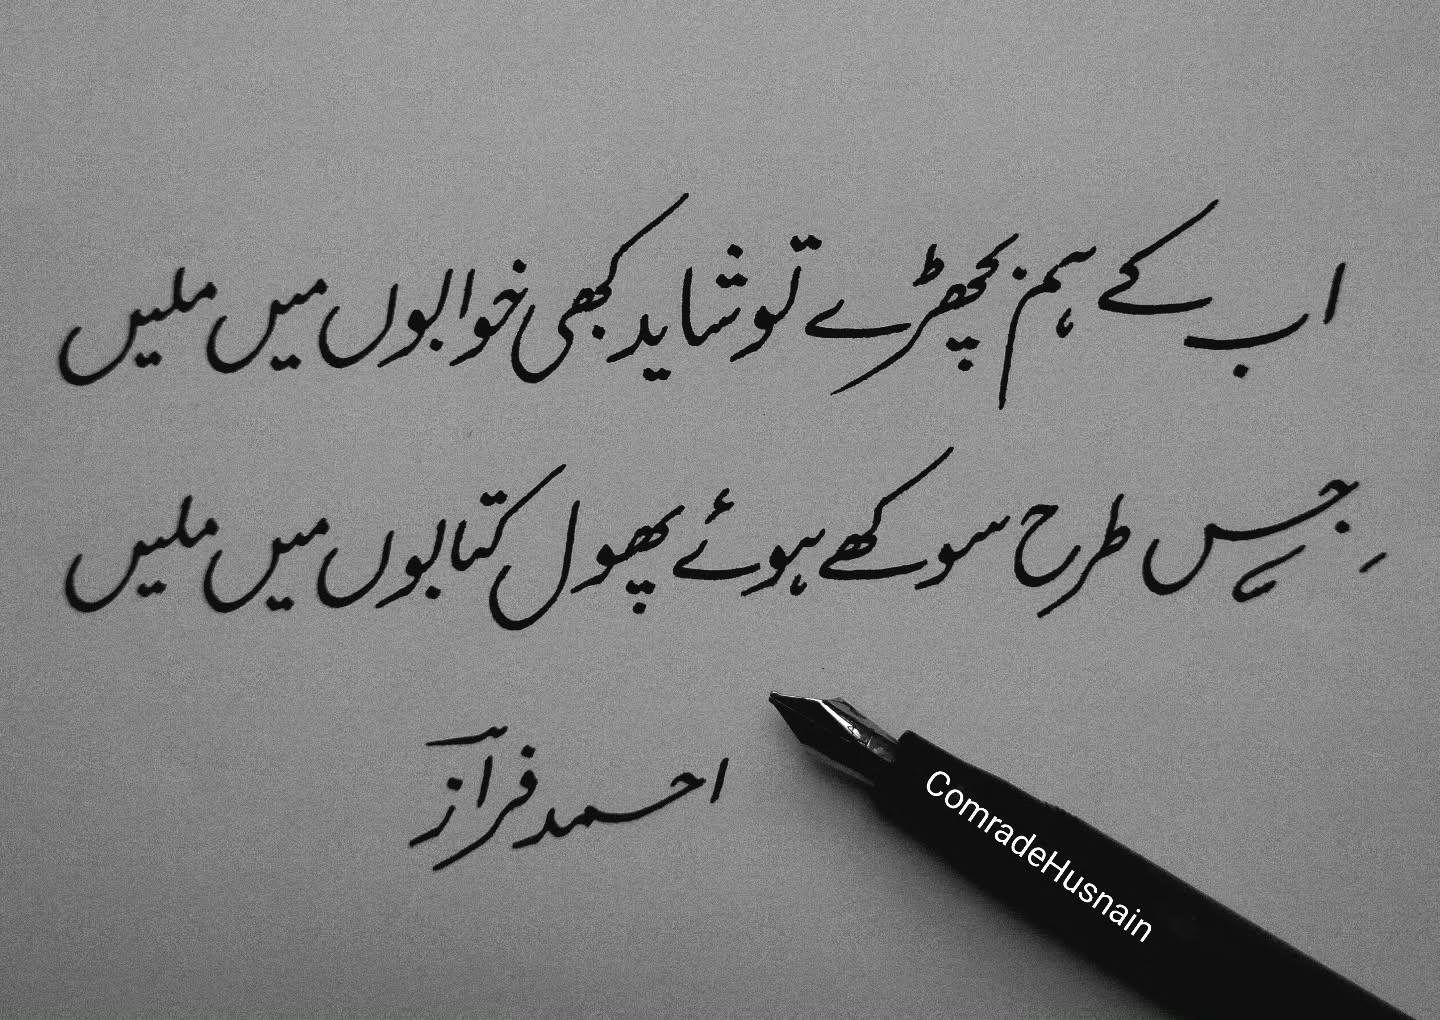 اب کے ہم بچھڑے تو شاید کبھی خوابوں میں ملیں
جس طرح سوکھے ہوئے پھول کتابوں میں ملیں
احمد فراز
ComradeHusnain